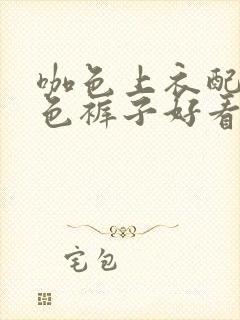 咖色上衣配
色裤子好看
宅包